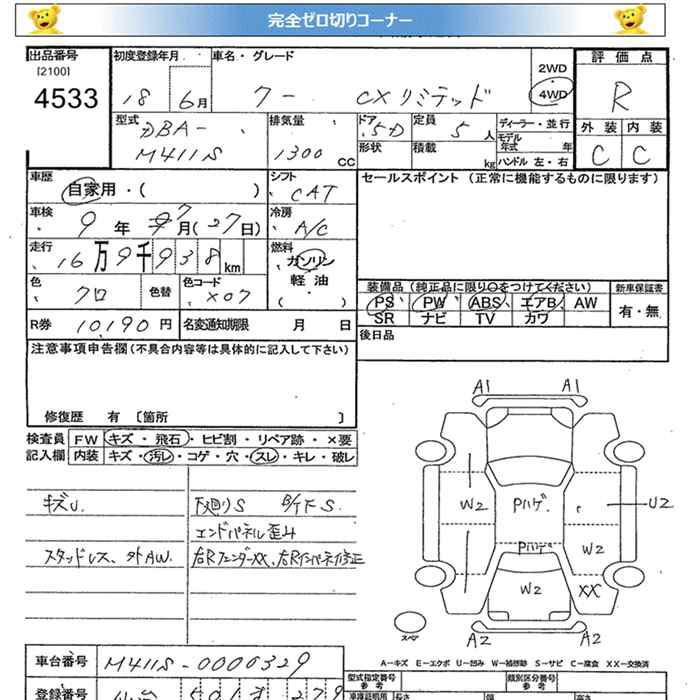 完全ゼロ切りコーナー
出品番号 初度登録年月 車名・グレード 2WD 評価点
[2100] 4533 18 6月 クー CXリミテッド 4WD R
型式 DBA- M411S 排気量 1300 CC ドア 5D 定員 5 人 ディーラー・並行 外装 内装
形状 積載 kg モデル年式 年 ハンドル 左・右 C C
車歴 自家用・( ) シフト CAT セールスポイント (正常に機能するものに限ります)
車検 9年 7月(27日) 冷房 A/C
走行 16万9千938km 燃料 ガソリン 軽油 ( )
色 クロ 色替 色コード X07 装備品(純正品に限り○をつけてください) 新車保証書
PS PW ABS エアB AW 有・無
SR ナビ TV カワ
R券 10,190円 名変通知期限 月 日 後日品
注意事項申告欄(不具合内容等は具体的に記入して下さい)
修復歴 有 〔箇所 〕
検査員 FW キズ・飛石・ヒビ割・リペア跡・×要
記入欄 内装 キズ・汚レ・コゲ・穴・スレ・キレ・破レ
キズU. 下廻りS
エンドパネル歪み
スタッドレス、外AW. 右RフェンダーXX、右Rインパネ修正
A1 A1
W2 Pハゲ U2
Pハゲ W2
W2 XX
スペア A2 A2
A－キズ E－エクボ U－凹み W－補修跡 S－サビ C－腐食 XX－交換済
車台番号 M411S-0006329
型式指定番号 参考 類別区分番号 参考
登録番号
車庫証明用 長さ 幅 高さ